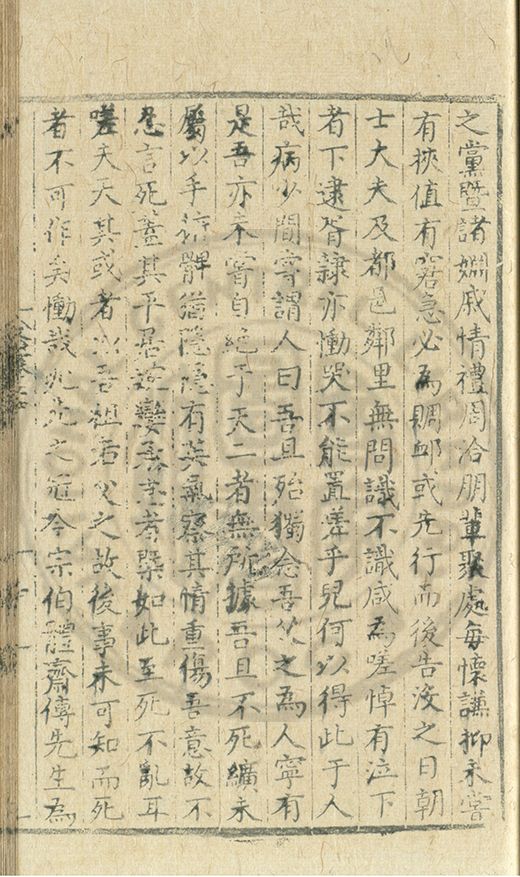 之黨暨諸姻戚情禮周洽朋輩聚處每懷謙抑未嘗
有挾值有窘急必為賙卹或先行而後告沒之日朝
士大夫及都邑鄰里無問識不識咸為嗟悼有泣下
者下逮胥隸亦慟哭不能置嗟乎兒何以得此于人
哉病少間嘗謂人曰吾且殆獨念吾父之為人寧有
是吾亦未嘗自絕于天二者無所據吾且不死纊未
屬以手拊髀猶隱隱有英氣察其情重傷吾意故不
忍言死蓋其平居遊變者槩如此至死不亂耳
嗟夫天其或者以吾祖若父之故後事未可知而死
者不可作矣慟哉兆先之近今宗伯體齋傅先生為